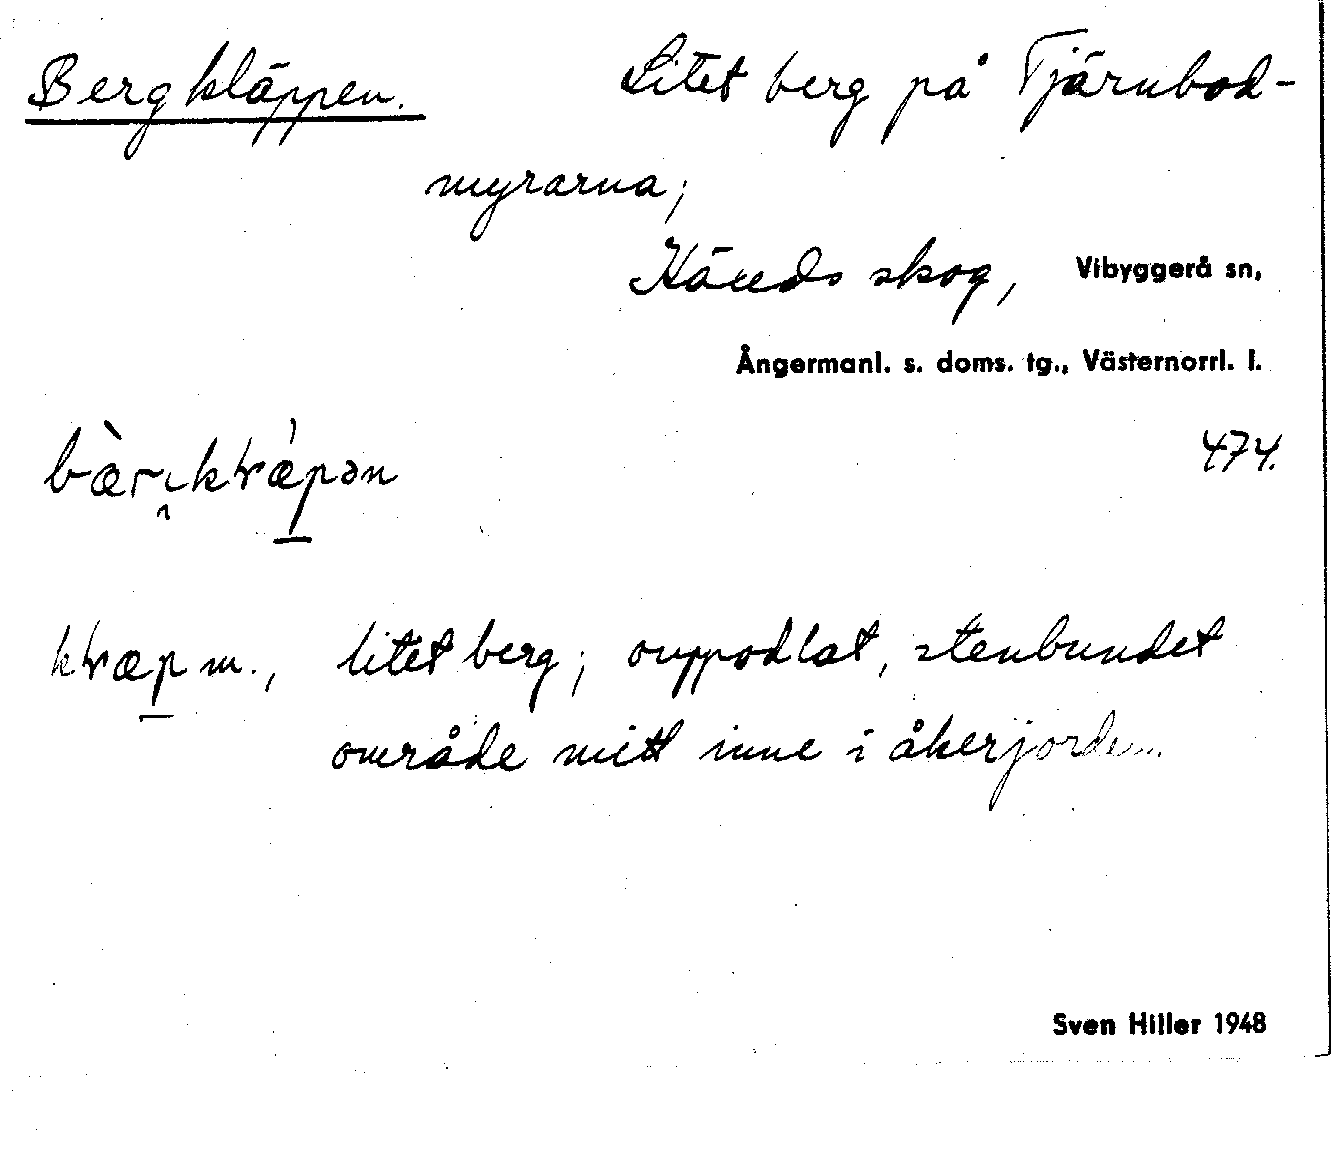 Bergkläppen. Litet berg på Tjärnbod-
myrarna;
skog, Vibyggerå sn,
Ångermanl. s. doms. tg., Västernorrl. l.
474.
m., litet berg; ouppodlat, stenbundet
område mitt inne i åkerjorden.
Sven Hiller 1948